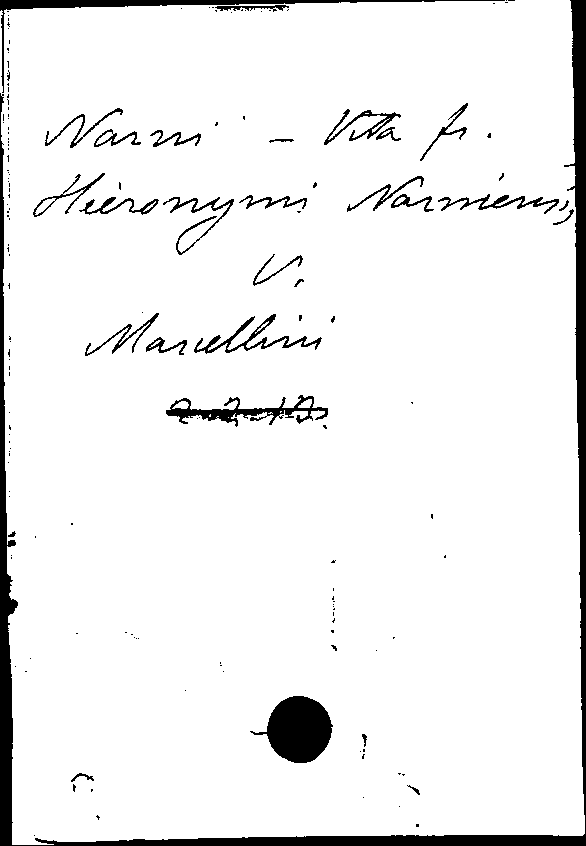 Narni - Vita fr.
Hieronymi Narniensis,
V.
Marcellini